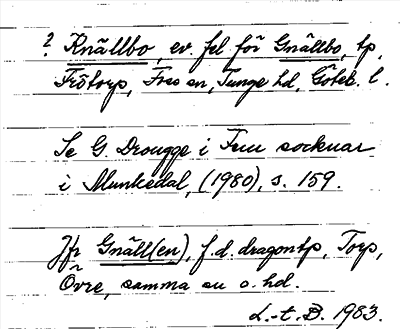 ? Knällbo, ev. fel för Gnällbo, tp,
Frötorp, Foss sn, Tunge hd, Göteb. l.
Se G. Drougge i Fem socknar
i Munkedal, (1980), s. 159.
Jfr Gnäll(en), f.d. dragontp, Torp,
Övre, samma sn o. hd.
L.-t. B. 1983.